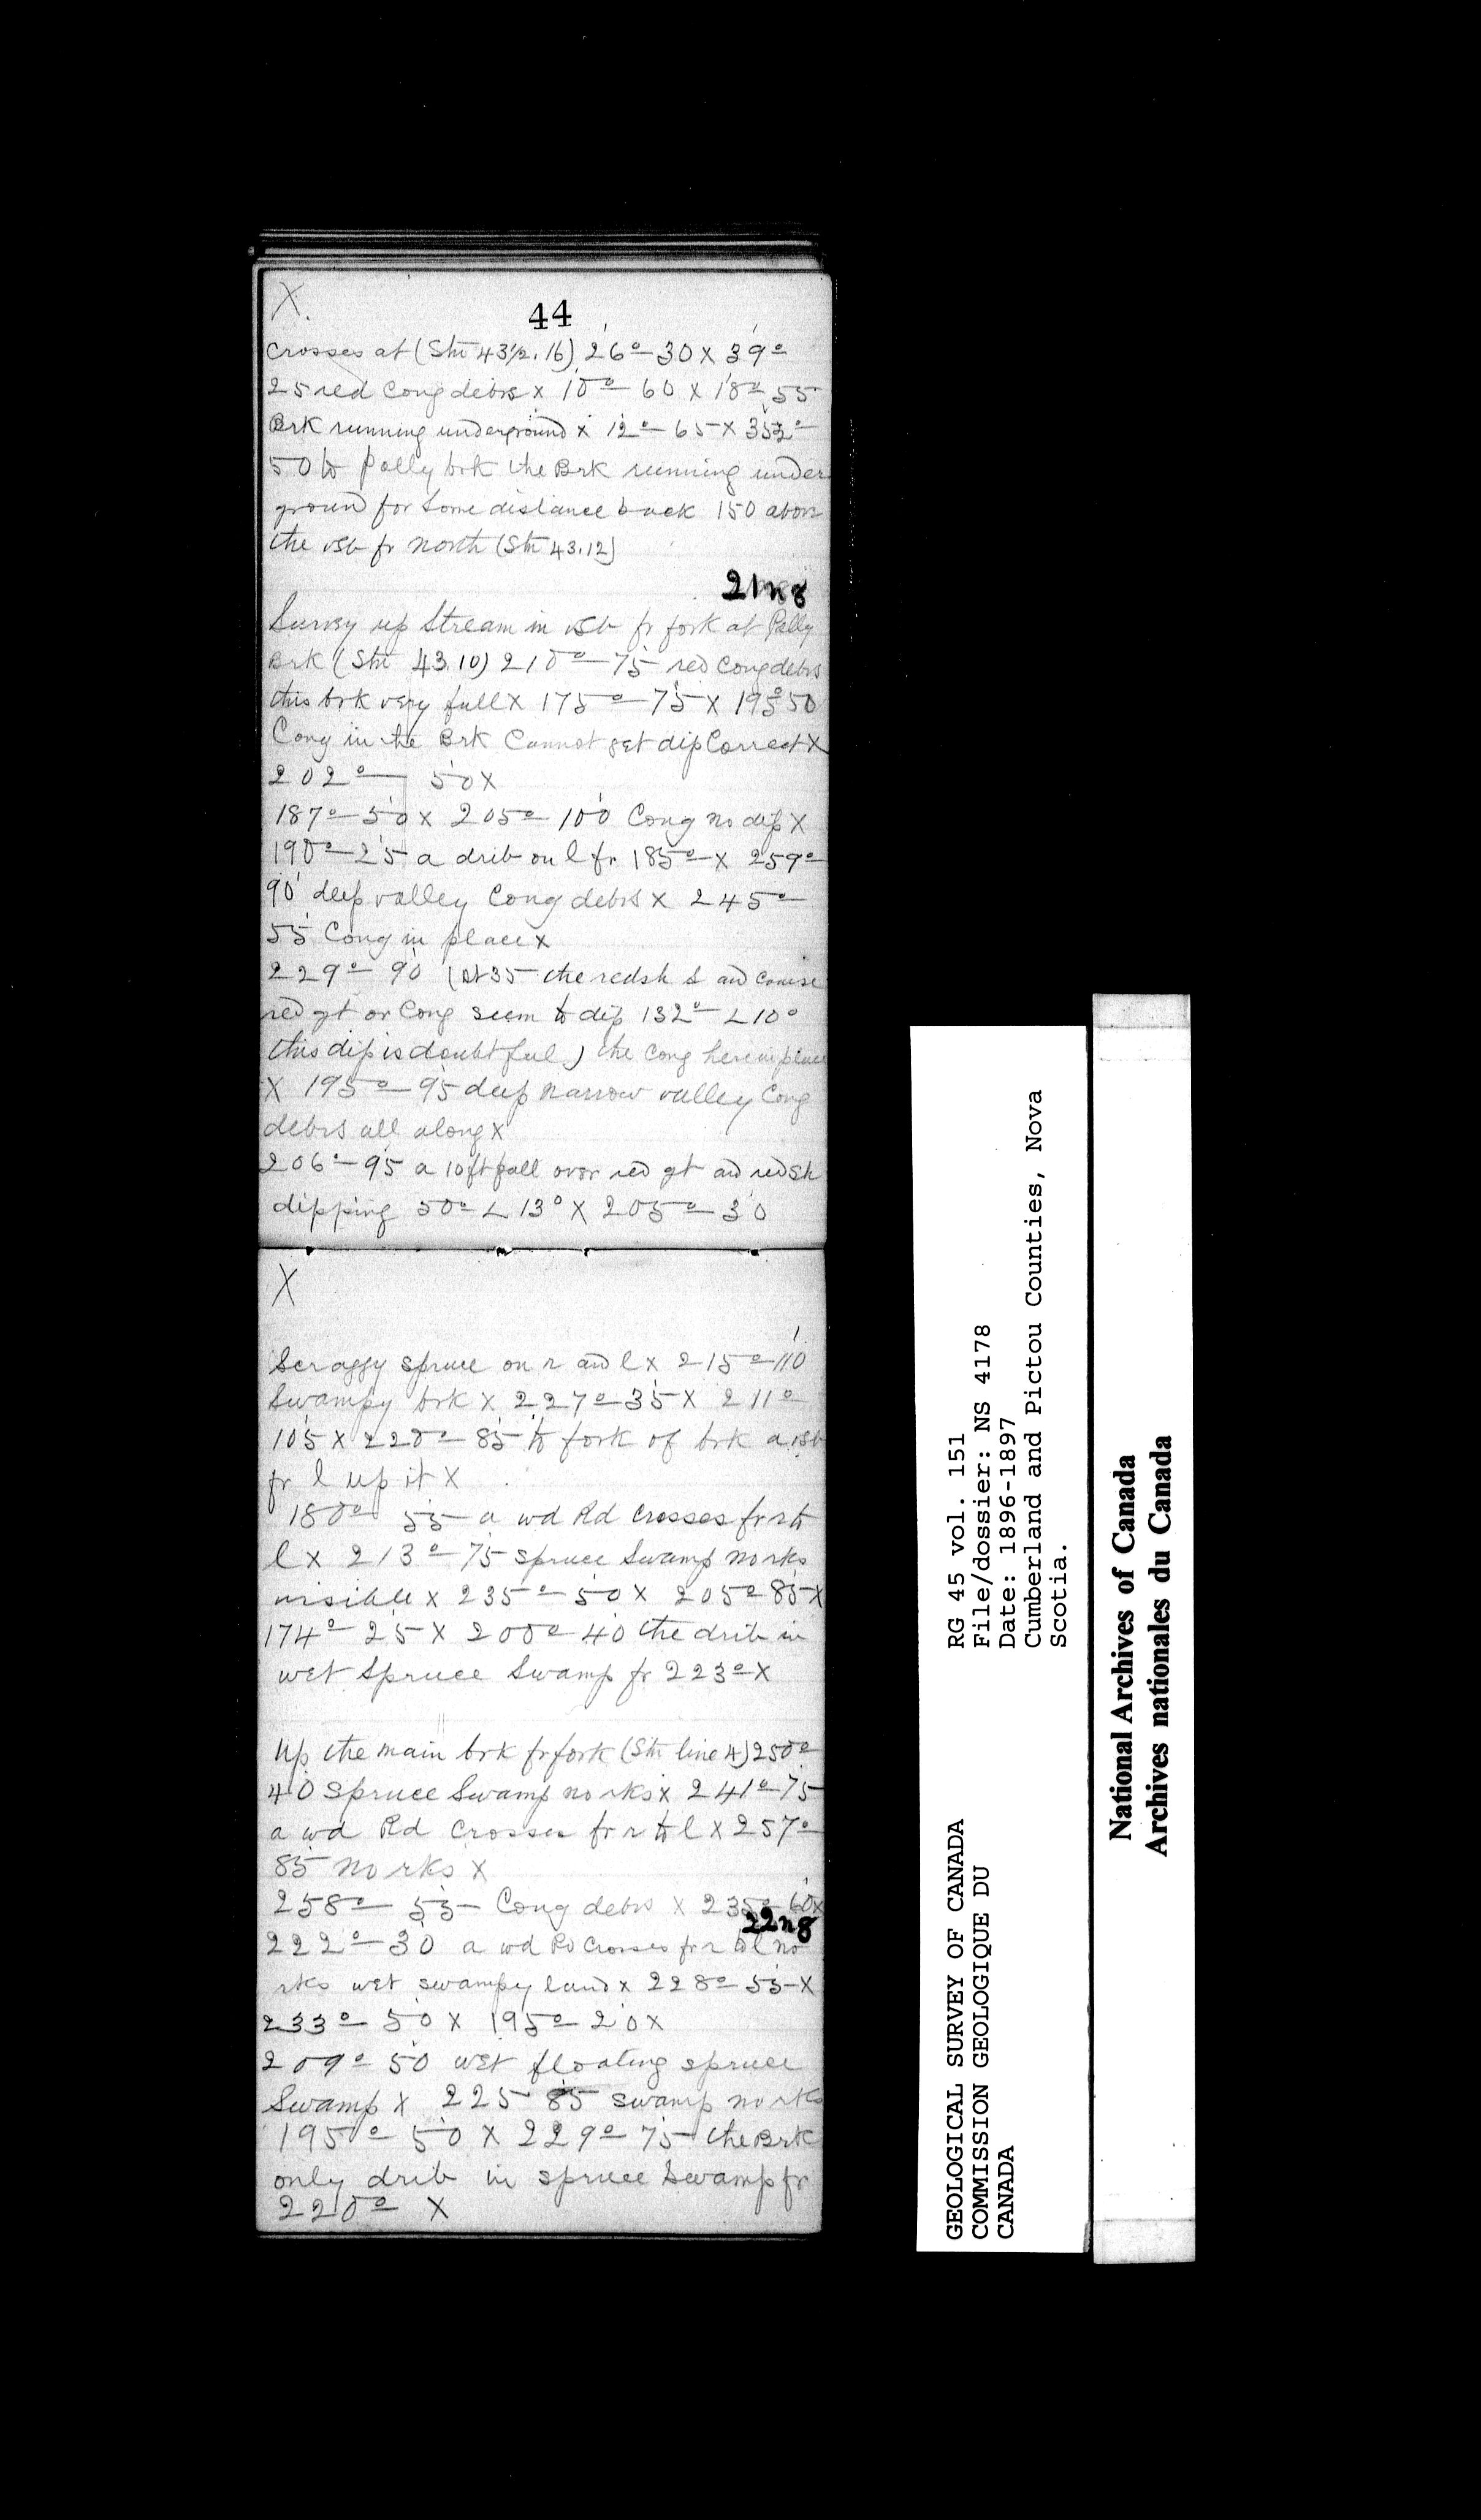 X.
44
crosses at (Stn 43½.16) 26°–30 X 39°–
25 red Cong debrs X 10°–60 X 18°–55
Brk running underground X 12°–65–X 352°–
50 to Polly brk the Brk running under
ground for some distance back 150 above
the vsb fr north (Stn 43.12)
21n8
Survey up Stream in vsb fr fork at Polly
Brk (Stn 43.10) 210°–75 red Cong debrs
this brk very full X 175°–75 X 195°50
Cong in the Brk Cannot get dip Correct X
202°– 50 X
187°–50 X 205°–100 Cong no dip X
190°–25 a drib on l fr 185°–X 259°–
90 deep valley Cong debrs X 245°–
55 Cong in place X
229°–90 (At 35 the red sh & and coarse
red gt or Cong seem to dip 132°–∠10°
this dip is doubtful) the Cong here in place
X 195°–95 deep narrow valley Cong
debrs all along X
206°–95 a 10 ft fall over red gt and red sh
dipping 50°–∠13° X 205°–30
X
Scraggy spruce on r and l X 215°–110
Swampy brk X 227°–35 X 211°–
105 X 220°–85 to fork of brk a vsb
fr l up it X
180°– 55 a wd Rd Crosses fr r to
l X 213°–75 spruce Swamp no rks
visible X 235°–50 X 205°–85 X
174°–25 X 200°–40 the drib in
wet Spruce Swamp fr 223°–X
Up the main brk fr fork (Stn line 4) 250°–
40 spruce Swamp no rks X 241°–75
a wd Rd Crosses fr r to l X 257°–
85 no rks X
258°– 55– Cong debrs X 235°–60 X
22n8
222°–30 a wd Rd Crosses fr r to l no
rks wet swampy land X 228°–55–X
233°–50 X 195°–20 X
209°–50 wet floating spruce
Swamp X 225 85 swamp no rks
195°–50 X 229°–75– the Brk
only drib in spruce Swamp fr
220°– X
GEOLOGICAL SURVEY OF CANADA
COMMISSION GEOLOGIQUE DU
CANADA
RG 45 vol. 151
File/dossier: NS 4178
Date: 1896-1897
Cumberland and Pictou Counties, Nova
Scotia.
National Archives of Canada
Archives nationales du Canada